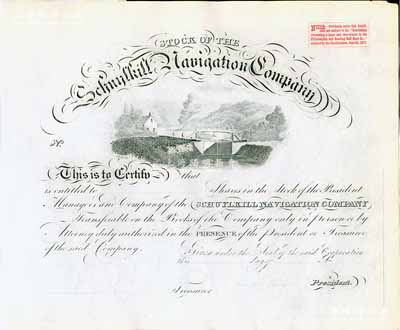 STOCK OF THE
Schuylkill Navigation Company
No.
This is to Certify that
is entitled to Shares in the Stock of the President
Managers and Company of the SCHUYLKILL NAVIGATION COMPANY,
Transferable on the Books of the Company only in person or by
Attorney duly authorized in the PRESENCE of the President or Treasurer
of the said Company. Given under the Seal of the said Corporation
this day of
President.
Treasurer